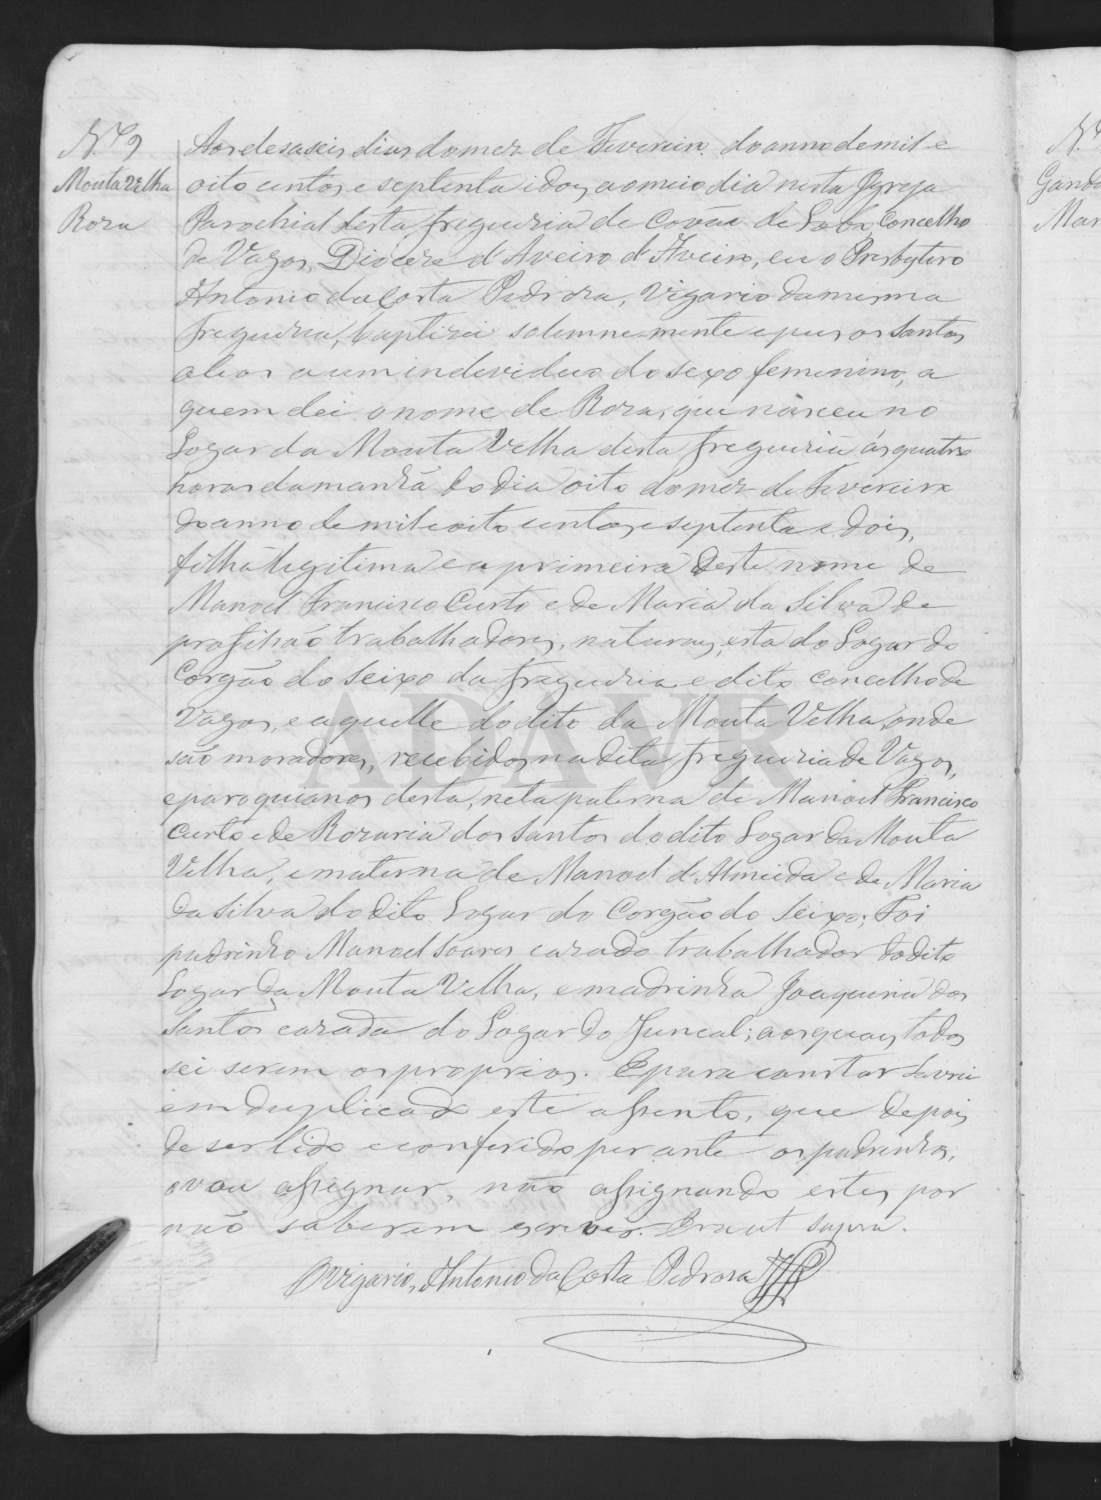 N.º 9
Mouta Velha
Roza
Aos desaseis dias do mez de Fevereiro do anno de mil e
oito centos e septenta i dois, ao meio dia nesta Igreja
Parochial desta freguezia de Covão do Lobo, Concelho
de Vagos, Dioceze d'Aveiro d'Aveiro, eu o Presbytero
Antonio da Costa Pedroza, Vigario da mesma
freguezia, baptizei solemne-mente e pus os Santos
oleos a um individuo do sexo femenino, a
quem dei o nome de Roza, que nasceu no
Logar da Mouta Velha desta freguezia ás quatro
horas da manhã do dia oito do mez de Fevereiro
do anno de mil e oito centos e septenta e dois,
filha legitima e a primeira deste nome de
Manoel Francisco Curto e de Maria da Silva de
profissão trabalhadores, naturaes, esta do Logar do
Corgão do Seixo da freguezia e dito concelho de
Vagos, e aquelle do dito da Mouta Velha, onde
são moradores, recebidos na dita freguezia de Vagos,
e paroquianos desta, neta paterna de Manoel Francisco
Curto e de Rozaria dos Santos do dito Logar da Mouta
Velha, e materna de Manoel d'Almeida e de Maria
da Silva do dito Logar do Corgão do Seixo; Foi
padrinho Manoel Soares cazado trabalhador do dito
Logar da Mouta Velha, e madrinha Joaquina dos
Santos cazada do Logar do Juncal; aos quaes todos
sei serem os proprios. E para constar lavrei
em duplicado este assento, que depois
de ser lido e conferido perante os padrinhos,
o vou assignar, não assignando estes por
não saberem escrever. Era ut supra.
O Vigario, Antonio da Costa Pedroza
ADAVR
N.º
Gand
Mar